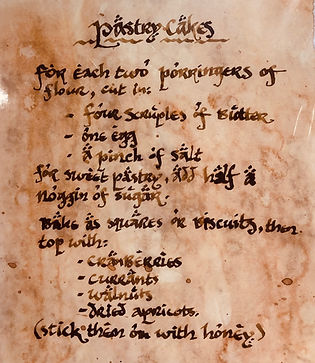 Pastry Cakes
for each two porringers of
flour, cut in:
- four scruples of Butter
- one egg
- a pinch of salt
for sweet pastry, add half a
noggin of sugar.
Bake as squares or biscuits, then
top with:
- cranberries
- currants
- walnuts
- dried apricots.
(stick them on with honey)